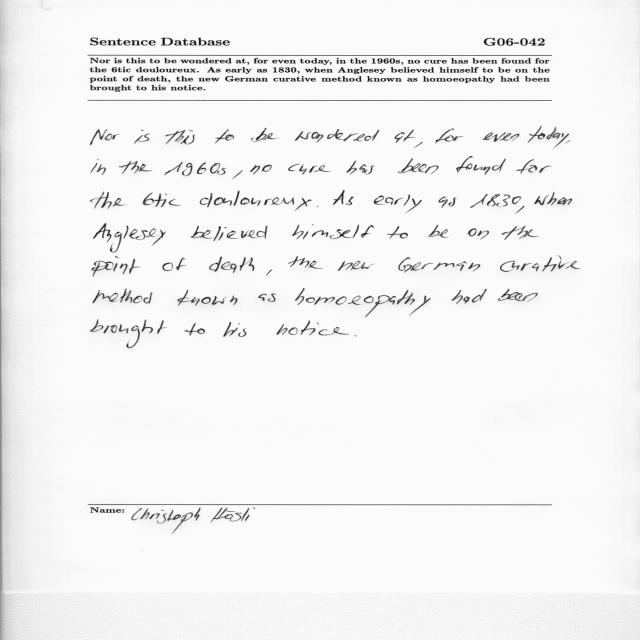 Sentence Database G06-042
Nor is this to be wondered at, for even today, in the 1960s, no cure has been found for
the 6tic douloureux. As early as 1830, when Anglesey believed himself to be on the
point of death, the new German curative method known as homoeopathy had been
brought to his notice.
Nor is this to be wondered at, for even today,
in the 1960s, no cure has been found for
the 6tic douloureux. As early as 1830, when
Anglesey believed himself to be on the
point of death, the new German curative
method known as homoeopathy had been
brought to his notice.
Name: Christoph